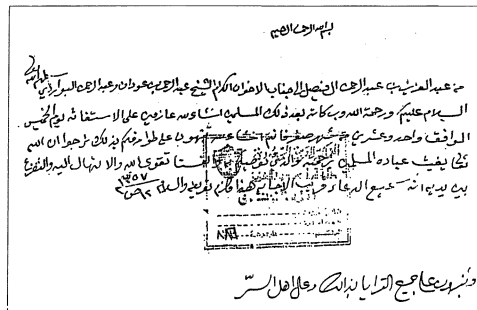 بسم الله الرحمن الرحيم
من عبدالعزيز بن عبدالرحمن الفيصل إلى جناب الاخوان الكرام الشيخ عبدالرحمن بن عودان وعبدالرحمن البواردي سلمهم الله
السلام عليكم ورحمة الله وبركاته بعد ذلك المسلمين انشاء الله عازمين على الاستغاثة يوم الخميس
الموافق واحد وعشرين من شهر صفر فانتم انشاء الله على طوارفكم بذلك نرجوا ان الله
تعالى يغيث عباده المسلمين برحمته بتقوى الله والابتهال اليه والتضرع
بين يديه انه سميع الدعاء قريب الاجابه هذا مالزم تعريفه والسلام ١٣٥٧
وتخبرون على جميع القرايا بذلك وعلى اهل السر